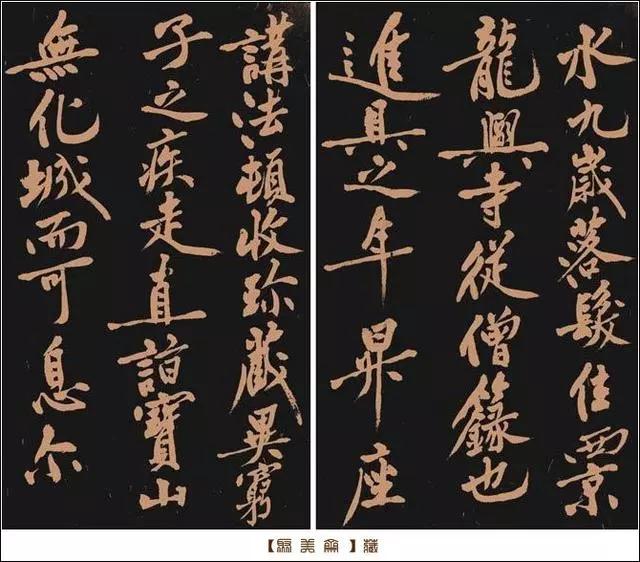 水九歲落髮住西京
龍興寺從僧籙也
進具之年昇座
講法頓收珍藏異窮
子之疾走直詣寶山
無化城而可息尔
【聚美齋】藏